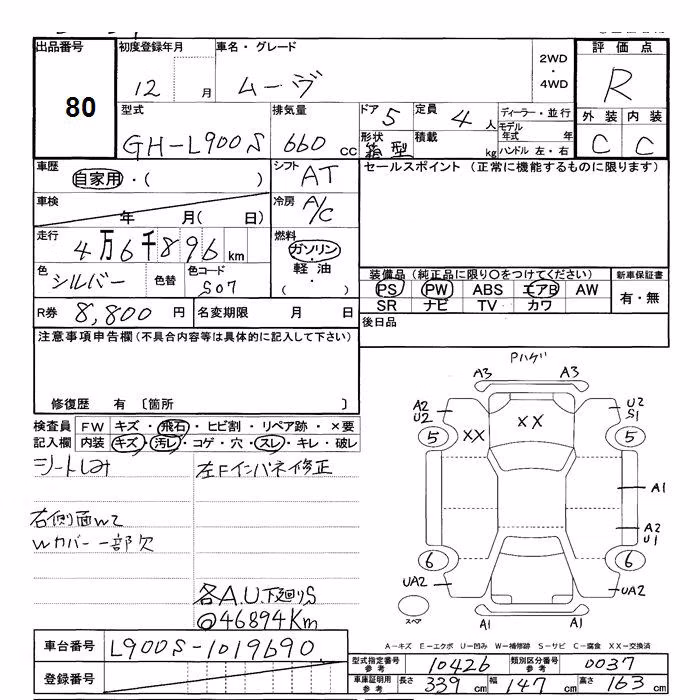 出品番号
80
初度登録年月
12 月
車名・グレード
ムーヴ
2WD
・
4WD
評価点
R
型式
GH-L900S
排気量
660 cc
ドア 5
形状
箱型
定員 4 人
積載 kg
ディーラー・並行
モデル年式 年
ハンドル 左・右
外装 内装
C C
車歴
自家用・( )
シフト
AT
セールスポイント (正常に機能するものに限ります)
車検
年 月( 日)
冷房
A/C
走行
4万6千896 km
燃料
ガソリン
軽油
( ・ )
色
シルバー
色替
色コード
S07
装備品 (純正品に限り○をつけてください)
PS PW ABS エアB AW
SR ナビ TV カワ
新車保証書
有・無
R券 8,800 円
名変期限 月 日
後日品
注意事項申告欄(不具合内容等は具体的に記入して下さい)
修復歴 有 〔箇所 〕
検査員
記入欄
FW キズ・飛石・ヒビ割・リペア跡・×要
内装 キズ・汚レ・コゲ・穴・スレ・キレ・破レ
シートしみ
左Fインパネ修正
右側面W2
Wカバー一部欠
各A.U.下廻りS
@46894Km
Pハゲ
A3 A3
A2
U2
U2
S1
5 XX XX 5
A1
A2
U1
6 6
UA2 UA2
スペア
A1 A1
A-キズ E-エクボ U-凹み W-補修跡 S-サビ C-腐食 XX-交換済
車台番号 L900S-1019690
登録番号
型式指定番号
参考
10426
類別区分番号
参考
0037
車庫証明用
参考
長さ 339 cm 幅 147 cm 高さ 163 cm